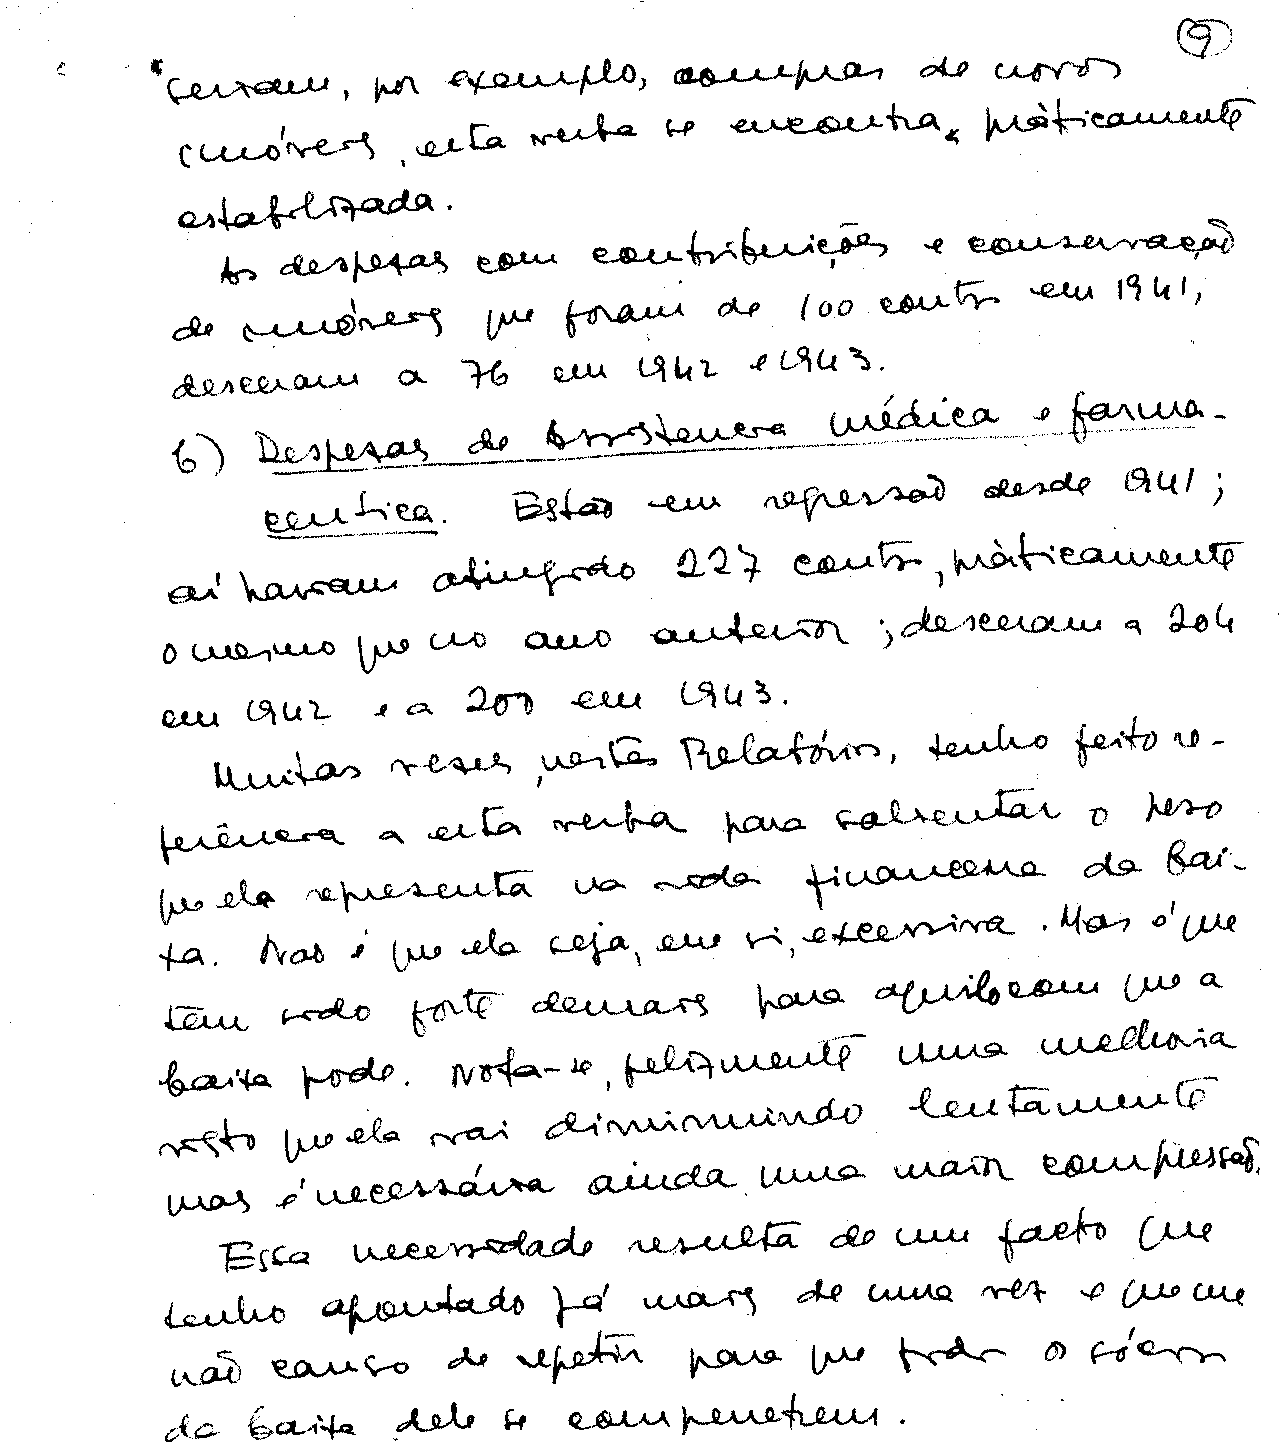 9
seriam, por exemplo, compras de novos
imóveis, esta verba se encontra, pràticamente
estabilizada.
As despesas com contribuições e conservação
de imóveis que foram de 100 contos em 1941,
desceram a 76 em 1942 e 1943.
6) Despesas de Assistencia médica e farma-
ceutica. Estão em regressão desde 1941;
aí haviam atingido 227 contos, pràticamente
o mesmo que no ano anterior; desceram a 204
em 1942 e a 200 em 1943.
Muitas vezes, nestes Relatórios, tenho feito re-
ferência a esta verba para salientar o peso
que ela representa na vida financeira da Cai-
xa. Não é que ela seja, em si, excessiva. Mas é que
tem sido forte demais para aquilo com que a
Caixa pode. Nota-se, felizmente uma melhoria
visto que ela vai diminuindo lentamente
mas é necessária ainda uma maior compressão.
Essa necessidade resulta de um facto que
tenho apontado já mais de uma vez e que me
não canso de repetir para que todos os sócios
da Caixa dele se compenetrem.